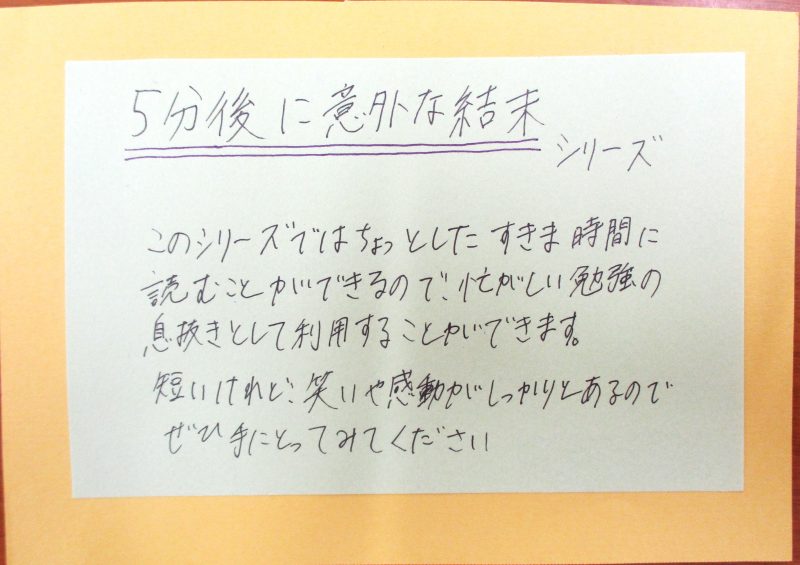 5分後に意外な結末
シリーズ
このシリーズではちょっとしたすきま時間に
読むことができるので、忙がしい勉強の
息抜きとして利用することができます。
短いけれど、笑いや感動がしっかりとあるので
ぜひ手にとってみてください